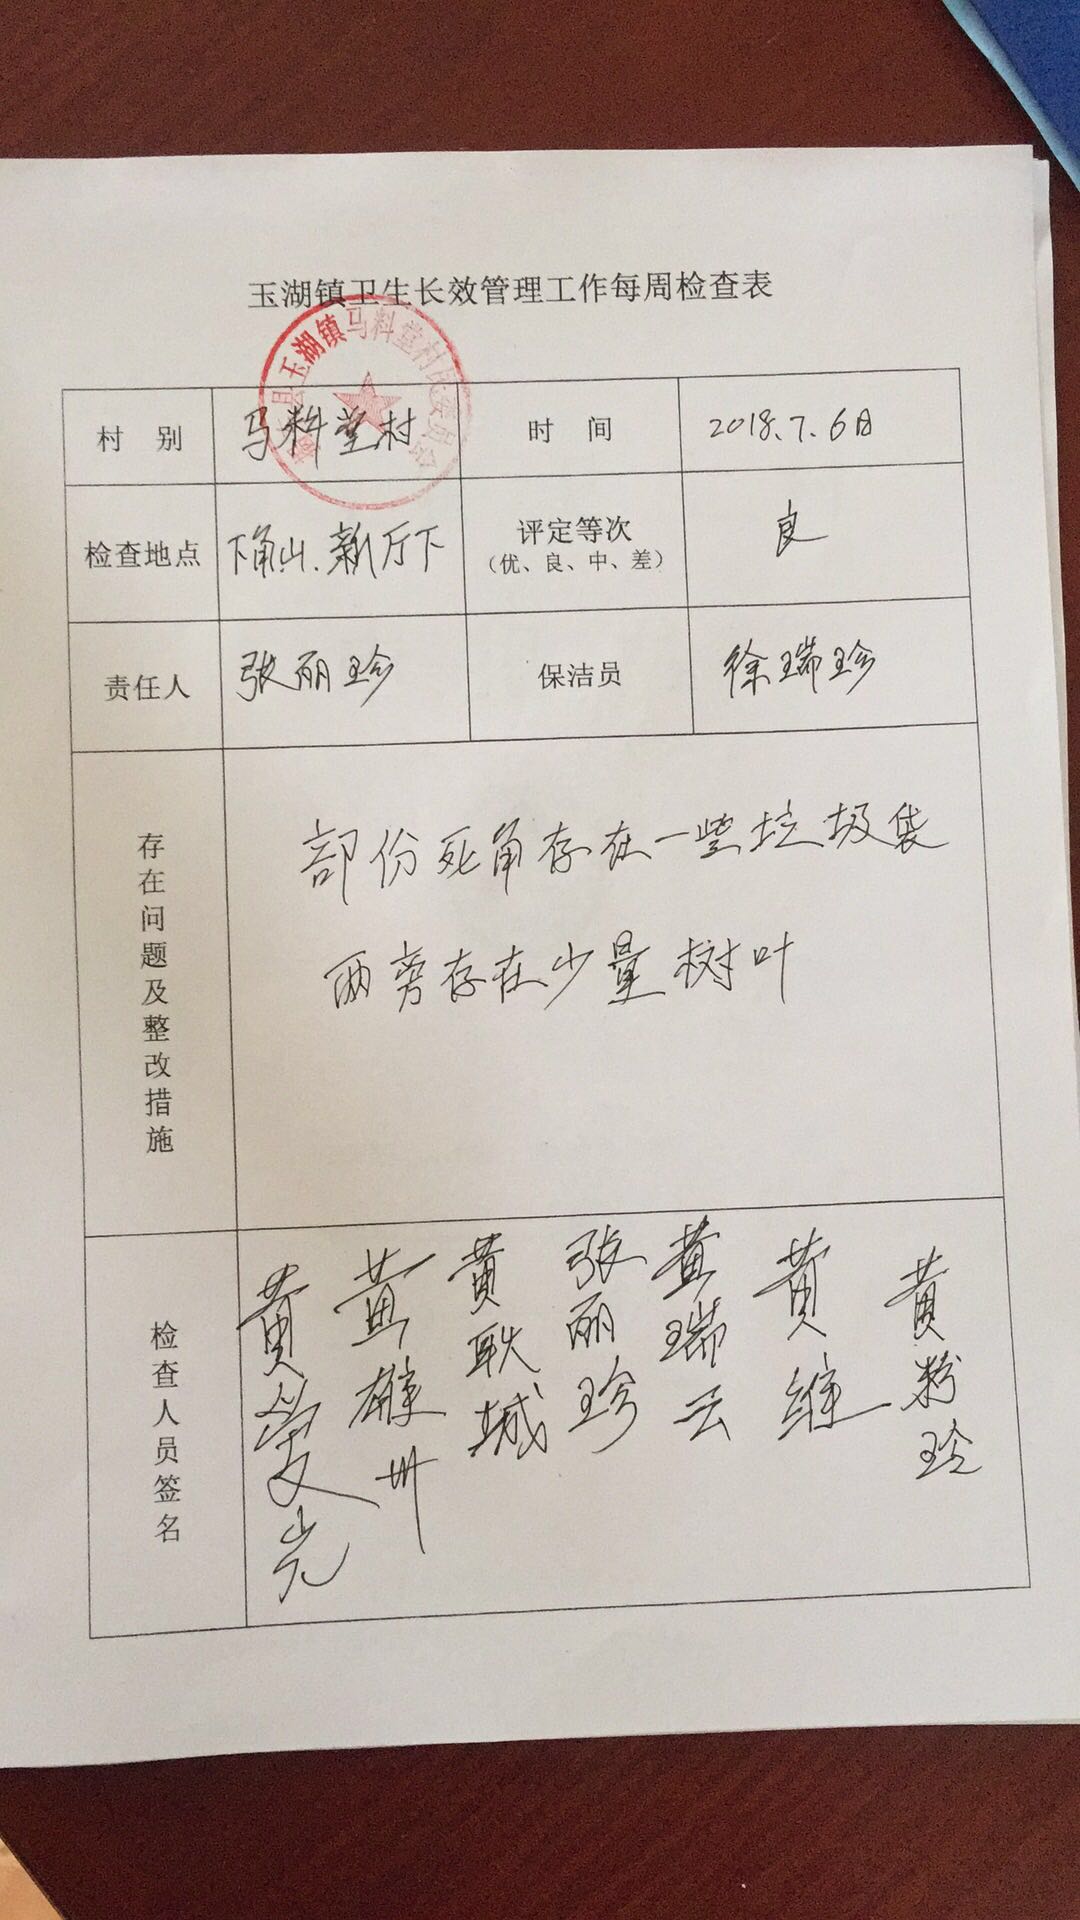 玉湖镇卫生长效管理工作每周检查表
玉湖镇马料堂村民委员会
村 别 马料堂村 时 间 2018.7.6日
检查地点 下角山、新厅下 评定等次
（优、良、中、差） 良
责任人 张丽珍 保洁员 徐瑞珍
存在问题及整改措施
部份死角存在一些垃圾袋
两旁存在少量树叶
检查人员签名
黄
黄雄州
黄耿城
张丽珍
黄瑞云
黄维
黄粉玲